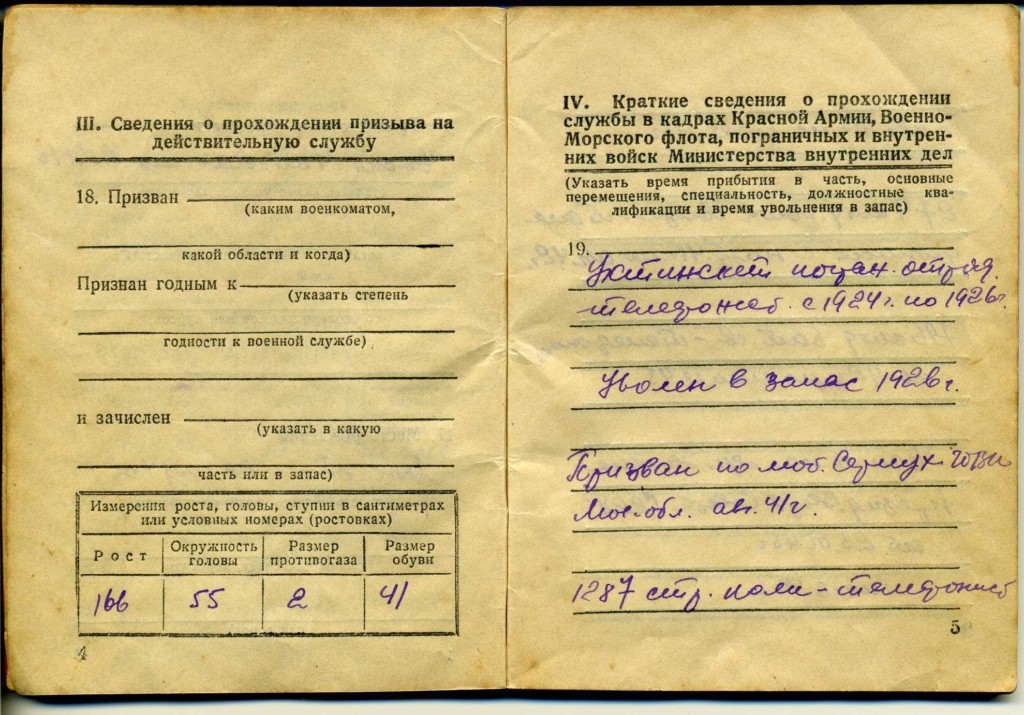 III. Сведения о прохождении призыва на
действительную службу
18. Призван
(каким военкоматом,
какой области и когда)
Признан годным к
(указать степень
годности к военной службе)
и зачислен
(указать в какую
часть или в запас)
Измерения роста, головы, ступни в сантиметрах
или условных номерах (ростовках)
Рост Окружность головы Размер противогаза Размер обуви
166 55 2 41
4
IV. Краткие сведения о прохождении
службы в кадрах Красной Армии, Военно-
Морского флота, пограничных и внутрен-
них войск Министерства внутренних дел
(Указать время прибытия в часть, основные
перемещения, специальность, должностные ква-
лификации и время увольнения в запас)
19.
отряд.
с 1924г. по 1926г.
Уволен в запас 1926г.
Призван по моб. Серпух. ГВК
Мос. обл. авг. 41г.
1287 стр. полк - телефонист
5